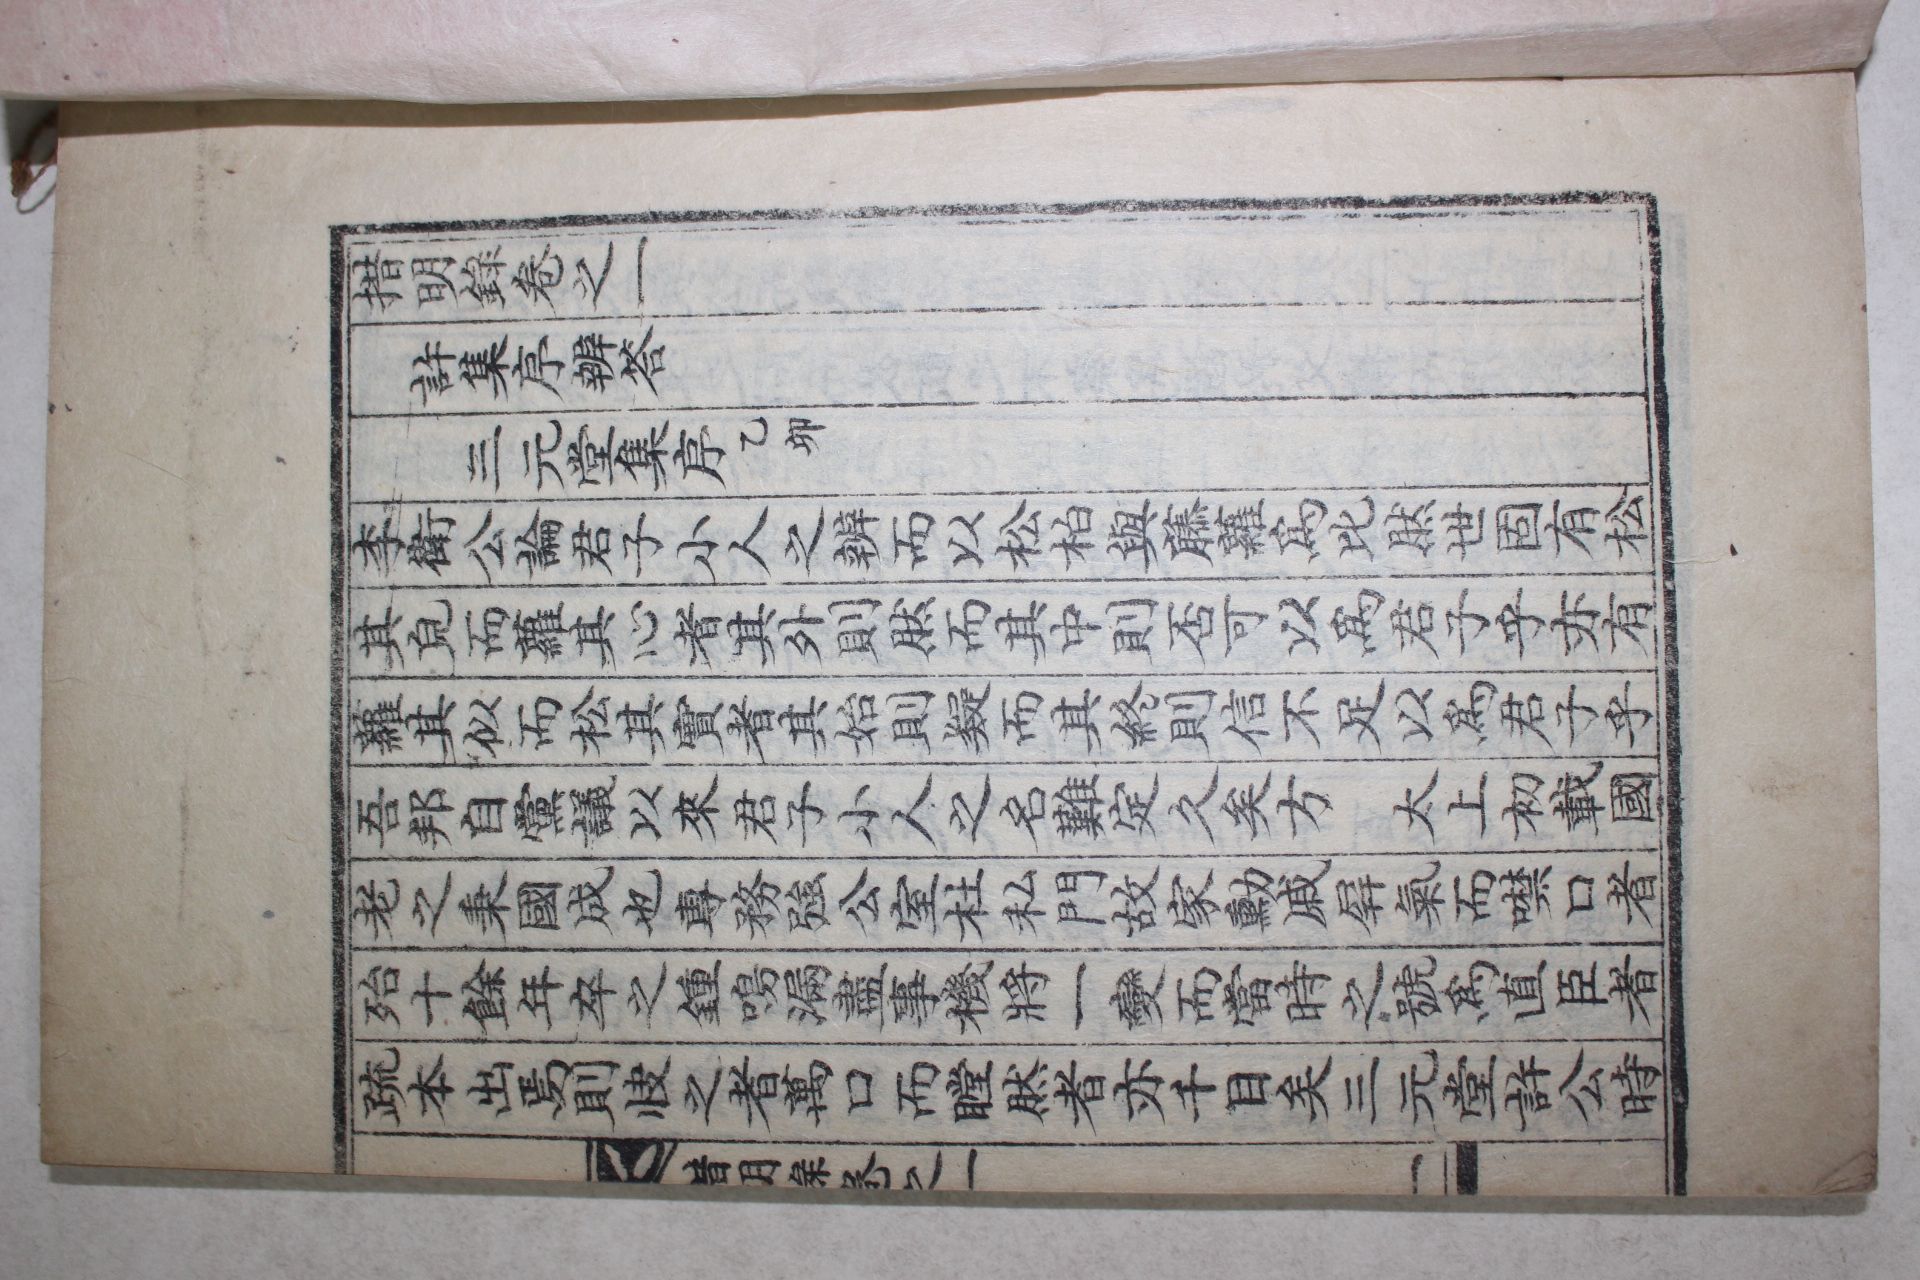 措明錄卷之一
許集序辨答
三元堂集序乙卯
李衛公論君子小人之辨而以松柏與藤蘿爲比然世固有松
其皃而蘿其心者其外則然而其中則否可以爲君子乎亦有
蘿其似而松其實者其始則疑而其終則信不足以爲君子乎
吾邦自黨議以來君子小人之名難定久矣方 太上初載國
老之秉國成也專務強公室杜私門故家勳戚屛氣而噤口者
殆十餘年卒之鍾鳴漏盡事機將一變而當時之號爲直臣者
疏本出焉則悏之者萬口而瞠然者亦千目矣三元堂許公時
措明錄卷之一
一